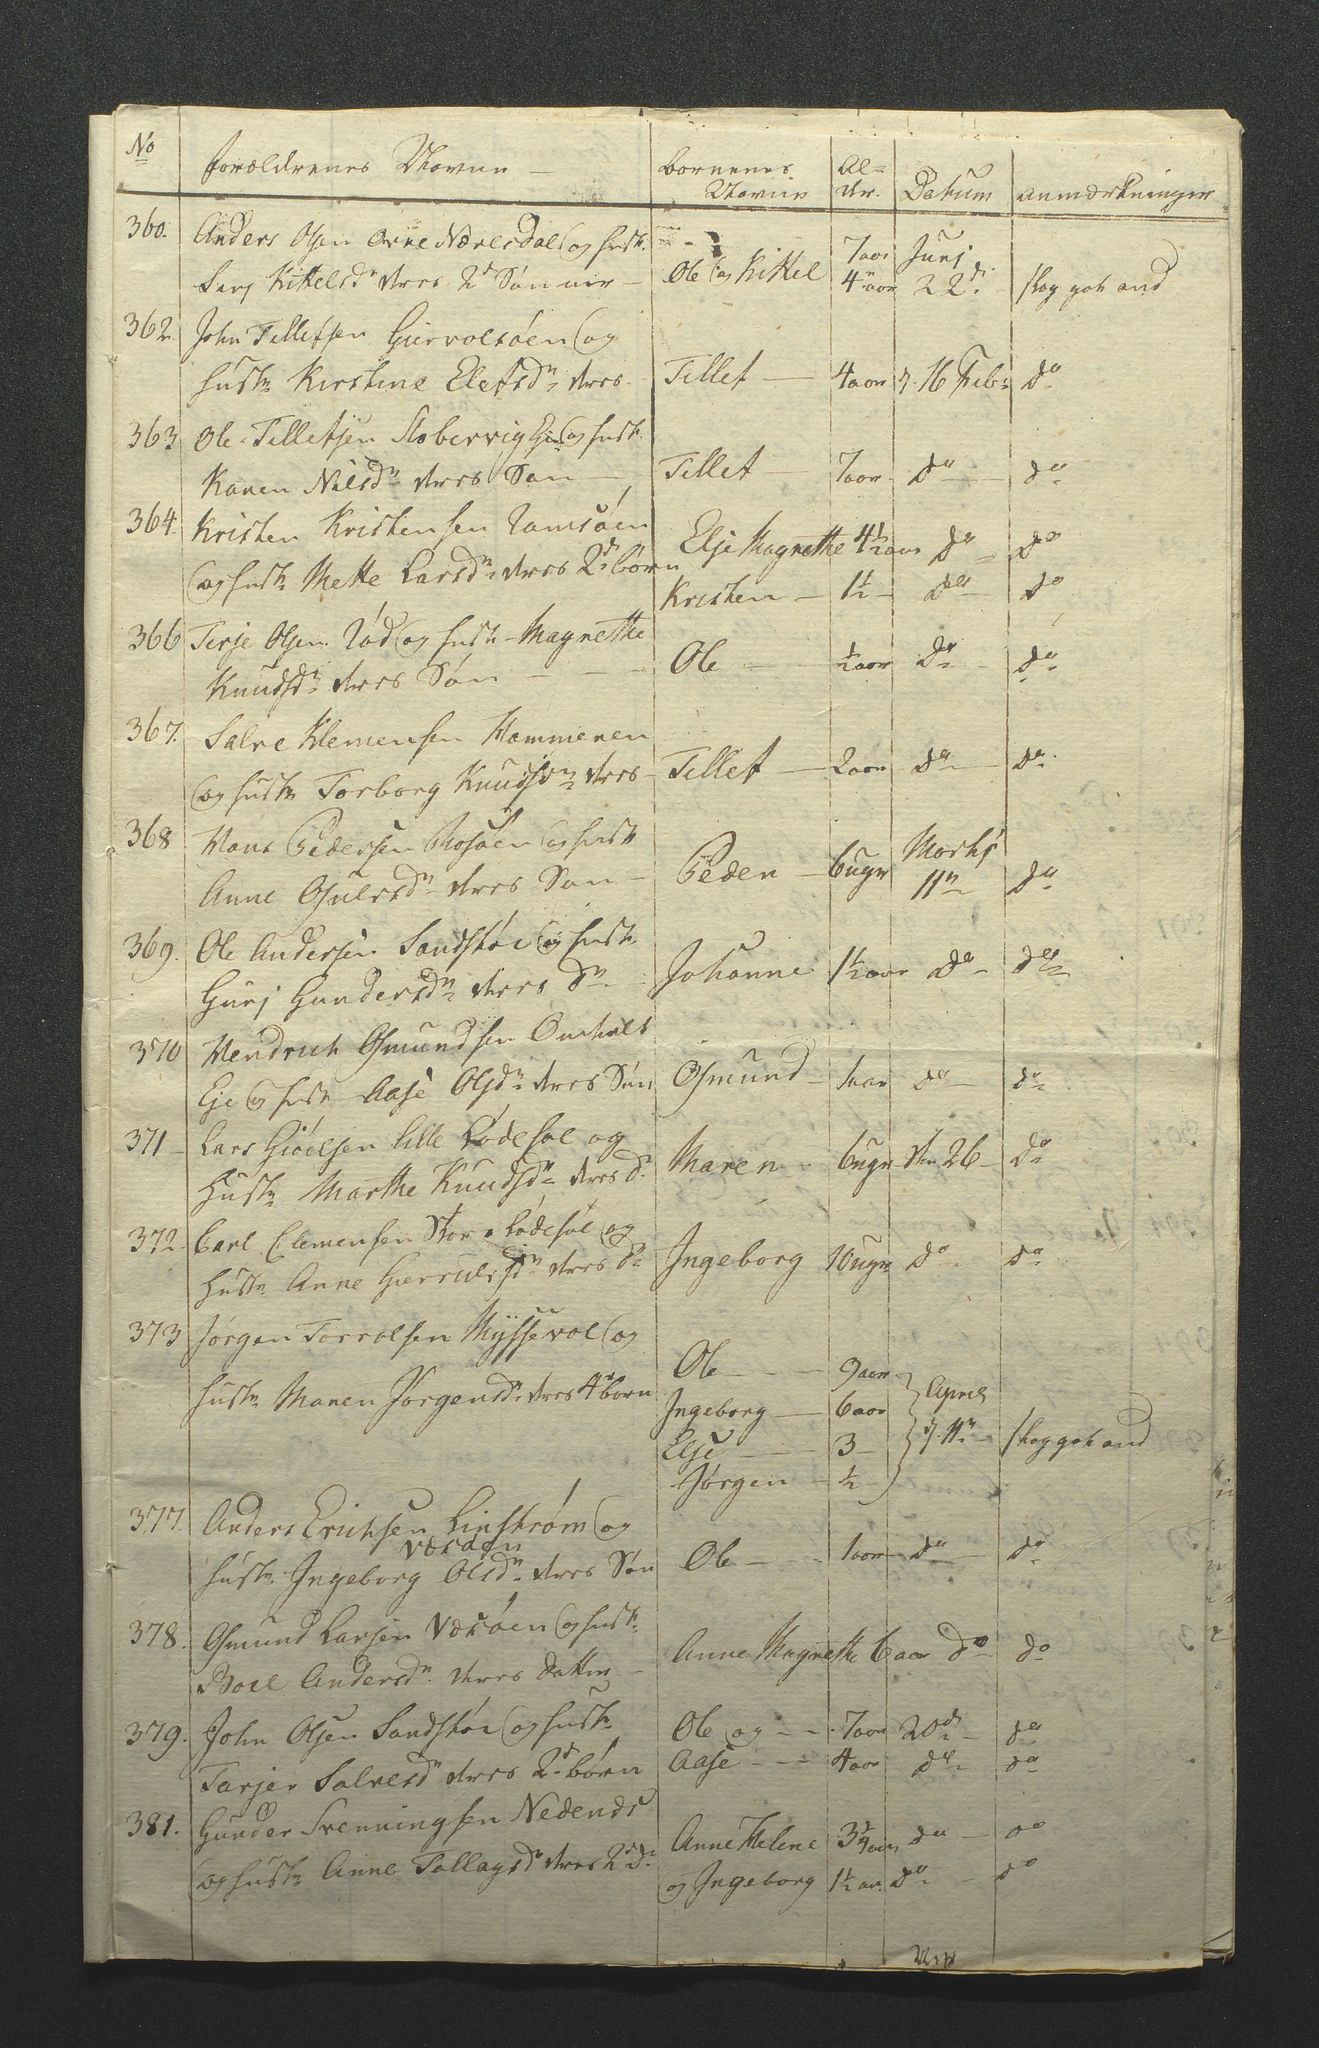 No Forældrenes Navne — Børnenes Navne Al= der. Datum anmærkninger
360. Anders Olsen Øvre Nævesdal og hust.
Siri Kittelsdr deres 2de Sønner — Ole og Kittel 7 aar 4 aar Junj 22d slog godt and
362. John Tellefsen Giervoldsøen og
hustr Kirstine Elefsdr deres Tellef — 4 aar d. 16 Febr do
363 Ole Tellefsen Stobervig Eje og hust.
Karen Nilsdr deres Søn — Tellef 7 aar do — do
364. Kristen Kristensen Tamsøen Else Magrethe 4½ aar do do
og hustr Mette Larsdr deres 2de børn Kristen — 1½ — do do
366 Terje Olsen Rød og hustr Magrethe
Knudsdr deres Søn — Ole — ½ aar do do
367. Salve Klemensen Hammeren
og hustr Torborg Knudsdr deres Tellef — 2 aar do do
368 Hans Pedersen Mosøen og hustr
Anne Gjulsdr deres Søn — Peder — 6 ugr Martj 11n do
369. Ole Andersen Sandstøe og hustr
Gurj Gundersdr deres dr Johanne 1½ aar do do
370 Hendrich Osmundsen Omholt
Eje og hustr Aase Olsdr deres Søn Osmund — 1 aar do do
371 — Lars Giøelsen lille Lødesøl og
hustr Marthe Knudsdr deres dr Maren — 6 ugr den 26 — do
372. Carl Clemensen Stor Lødesøl og
hustr Anne Gierulfsdr deres dr Ingeborg 10 ugr do do
373 Jørgen Torvalsen Myssevol og
hustr Maren Jørgensdr deres 4r børn Ole — 9 aar
Ingeborg — 6 aar April
Else — 3 — d. 11n slog godt and
Jørgen — ½ —
377. Anders Erichsen Linstrøm og
Værøen
hustr Ingeborg Olsdr deres Søn Ole — 1 aar do do
378. Osmund Larsen Værøen og hustr
Boel Andersdr deres datter — Anne Magrethe 6 aar do do
379. John Olsen Sandstøe og hustr Ole og — 7 aar 20d — do
Tarjer Salvesdr deres 2de børn Aase — 4 aar do do
381. Gunder Svenningsen Nedenes
og hustr Anne Tallagsdr deres 2de dr Anne Helene 3¼ aar do — do
og Ingeborg 1½ aar. do — do